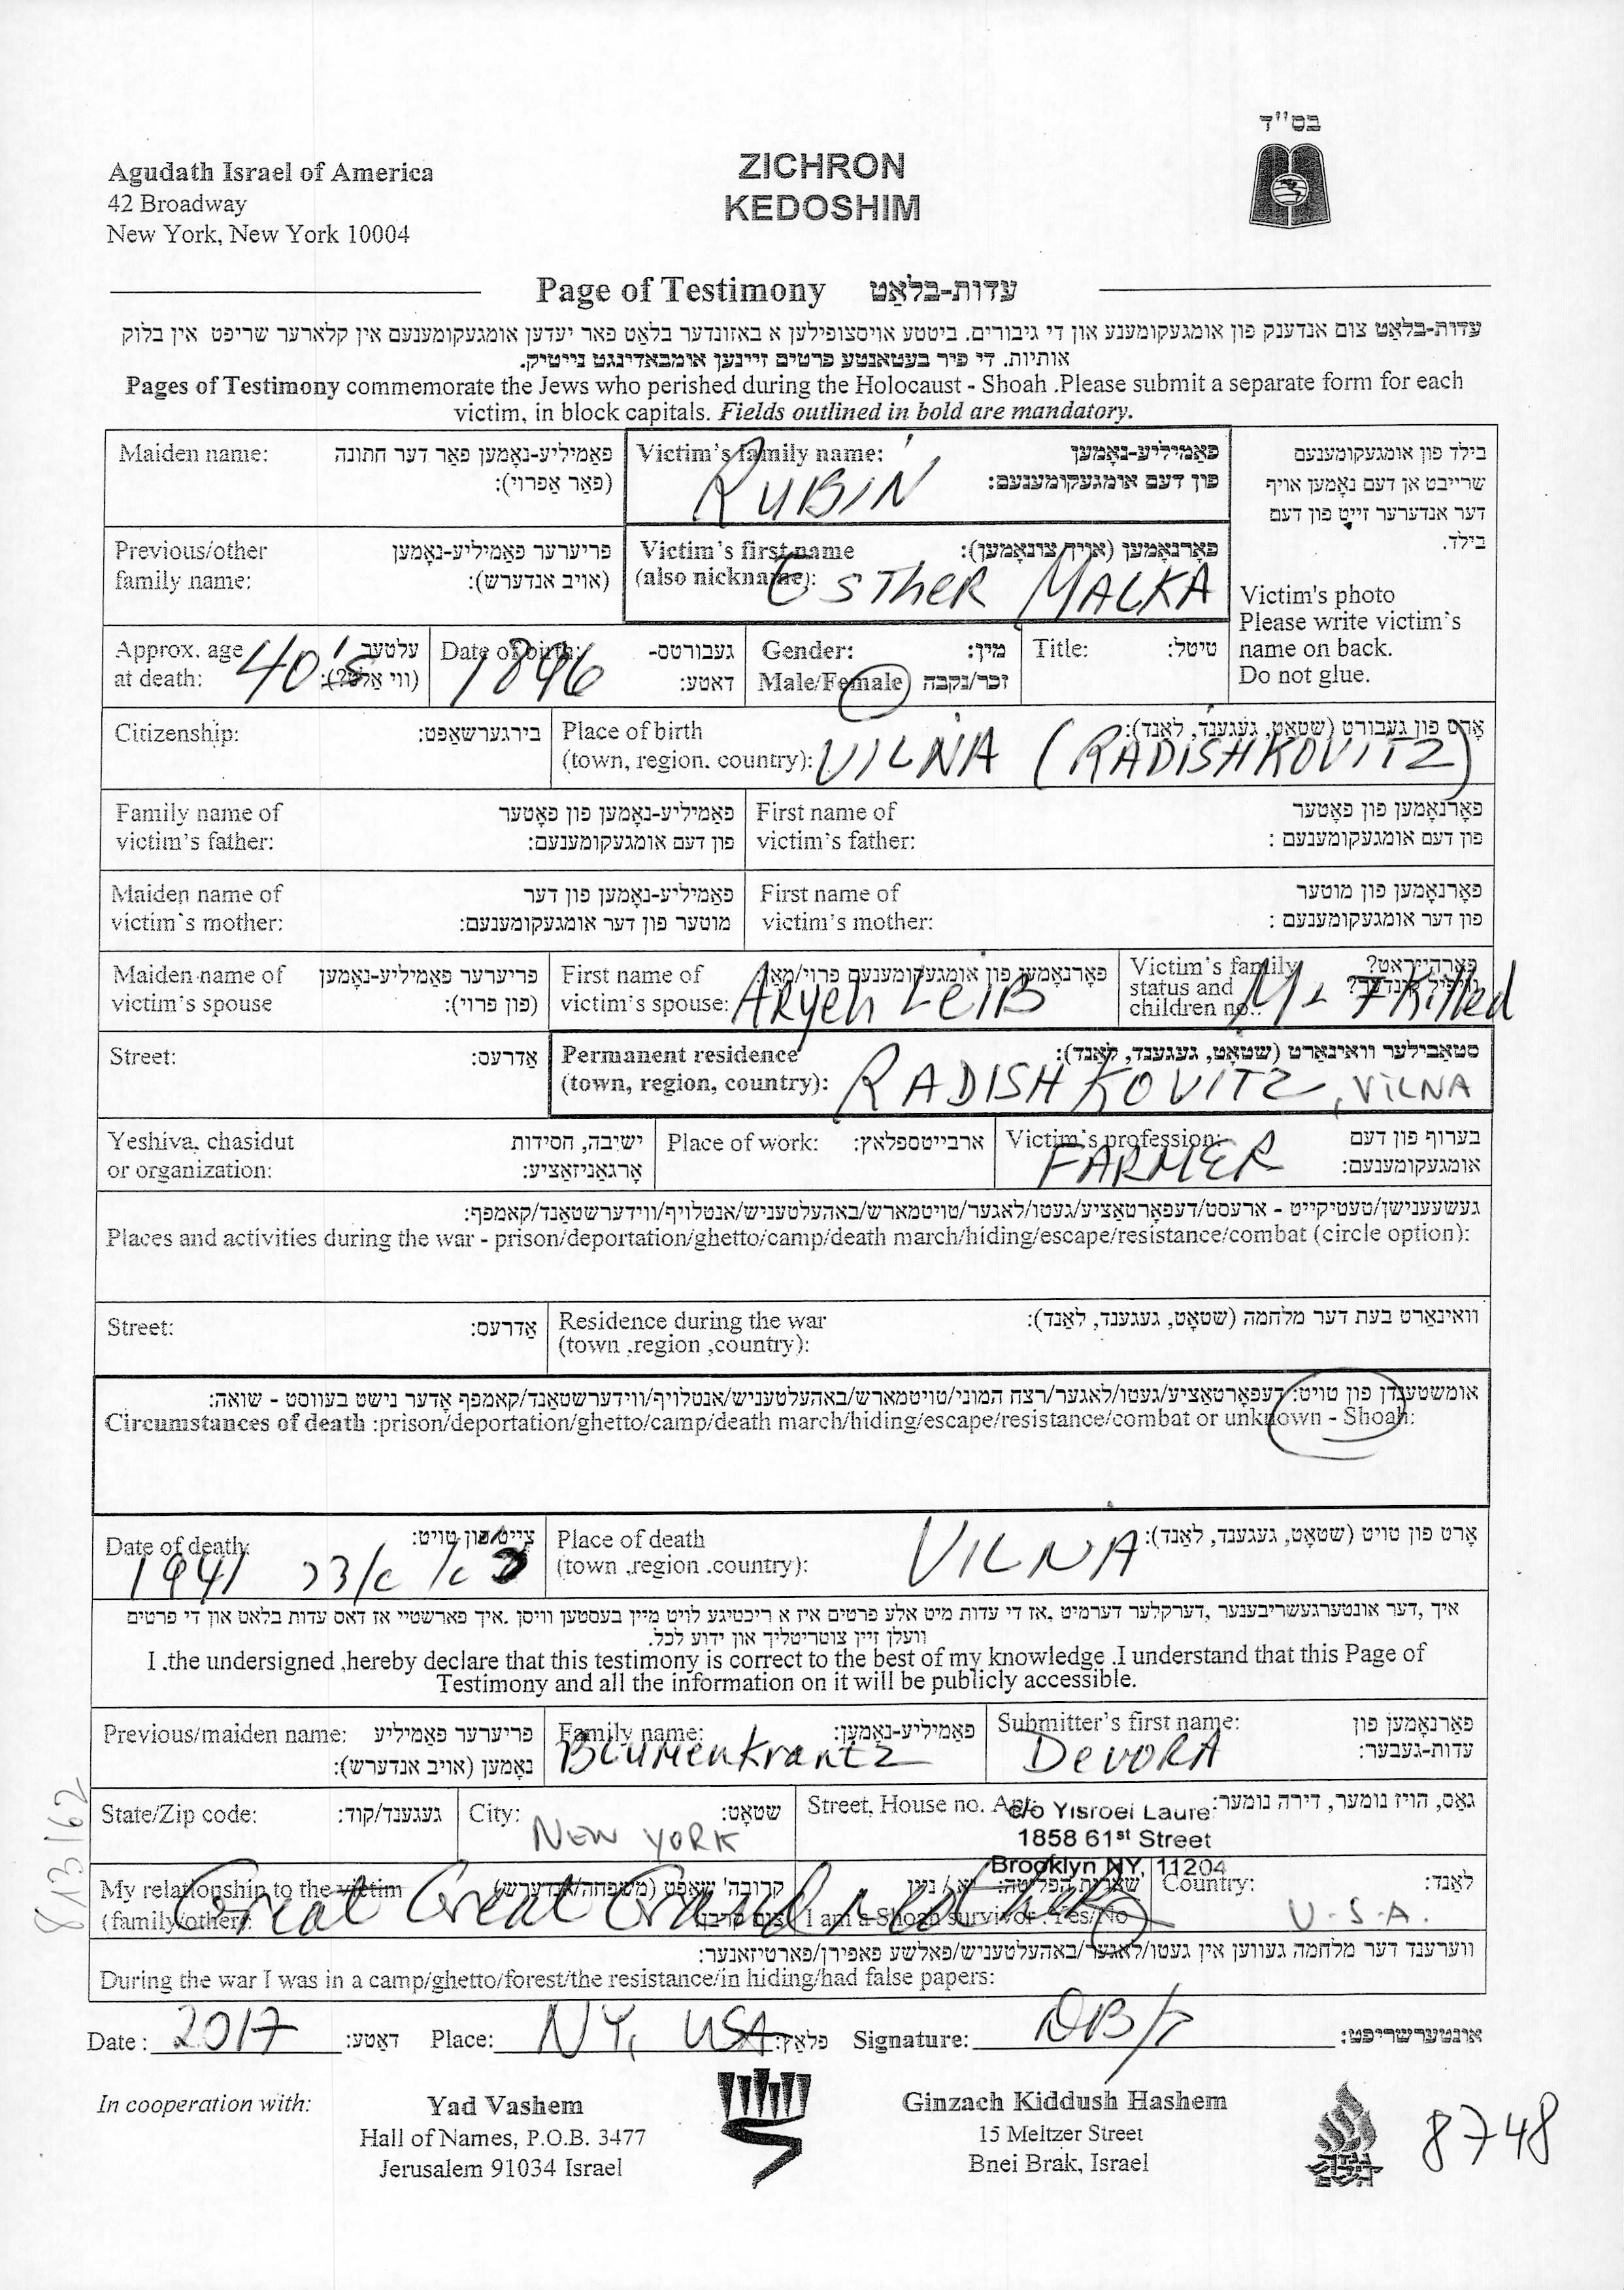 בס"ד
Agudath Israel of America
42 Broadway
New York, New York 10004
ZICHRON
KEDOSHIM
Page of Testimony עדות-בלאַט
עדות-בלאַט צום אנדענק פון אומגעקומענע און די גיבורים. ביטטע אויסצופילען א באזונדער בלאַט פאר יעדען אומגעקומענעם אין קלארער שריפט אין בלוק
אותיות. די פיר בעטאנטע פרטים זיינען אומבאדינגט נייטיק.
Pages of Testimony commemorate the Jews who perished during the Holocaust - Shoah .Please submit a separate form for each
victim, in block capitals. Fields outlined in bold are mandatory.
Maiden name: פאַמיליע-נאָמען פאַר דער חתונה
(פאַר אַפרוי):
Victim's family name: פאַמיליע-נאָמען
פון דעם אומגעקומענעם:
RUBIN
בילד פון אומגעקומענעם
שרייבט אן דעם נאָמען אויף
דער אנדערער זייט פון דעם
בילד.
Previous/other פריערער פאַמיליע-נאָמען
family name: (אויב אנדערש):
Victim's first name פאָרנאָמען (אויך צונאָמען):
(also nickname):
EsTheR MALKA
Victim's photo
Please write victim's
name on back.
Do not glue.
Approx. age עלטער
at death: (ווי אַלט?):
40's
Date of birth: געבורטס-
דאטע:
1896
Gender: מין:
Male/Female זכר/נקבה
Title: טיטל:
Citizenship: בירגערשאַפט:
Place of birth אָרט פון געבורט (שטאָט, געגענד, לאַנד):
(town, region. country):
VILNA (RADISHKOVITZ)
Family name of פאַמיליע-נאָמען פון פאָטער
victim's father: פון דעם אומגעקומענעם:
First name of פאָרנאָמען פון פאָטער
victim's father: פון דעם אומגעקומענעם :
Maiden name of פאַמיליע-נאָמען פון דער
victim's mother: מוטער פון דער אומגעקומענעם:
First name of פאָרנאָמען פון מוטער
victim's mother: פון דער אומגעקומענעם :
Maiden name of פריערער פאַמיליע-נאָמען
victim's spouse (פון פרוי):
First name of פאָרנאָמען פון אומגעקומענעם פרוי/מאַן
victim's spouse:
ARyeh LeiB
Victim's family פארהייראט?
status and
children no.:
M 7 Killed
Street: אַדרעס:
Permanent residence סטאַבילער וואוינאָרט (שטאָט, געגענד, לאַנד):
(town, region, country):
RADISHKOVITZ, VILNA
Yeshiva, chasidut ישיבה, חסידות
or organization: אָרגאַניזאַציע:
Place of work: ארבייטספלאץ:
Victim's profession: בערוף פון דעם
אומגעקומענעם:
FARMER
געשעענישן/טעטיקייט - ארעסט/דעפאָרטאַציע/געטו/לאַגער/טויטמארש/באהעלטעניש/אנטלויף/ווידערשטאַנד/קאמפף:
Places and activities during the war - prison/deportation/ghetto/camp/death march/hiding/escape/resistance/combat (circle option):
Street: אַדרעס:
Residence during the war וואוינאָרט בעת דער מלחמה (שטאָט, געגענד, לאַנד):
(town ,region ,country):
אומשטענדן פון טויט: דעפאָרטאַציע/געטו/לאַגער/רצח המוני/טויטמארש/באהעלטעניש/אנטלויף/ווידערשטאַנד/קאמפף אָדער נישט בעוואוסט - שואה:
Circumstances of death :prison/deportation/ghetto/camp/death march/hiding/escape/resistance/combat or unknown - Shoah:
Date of death: צייט פון טויט:
1941
Place of death אָרט פון טויט (שטאָט, געגענד, לאַנד):
(town ,region .country):
VILNA
איך ,דער אונטערגעשריבענער ,דערקלער דערמיט ,אז די עדות מיט אלע פרטים איז א ריכטיגע לויט מיין בעסטען וויסן .איך פארשטיי אז דאס עדות בלאט און די פרטים
וועלן זיין צוטריטליך און ידוע לכל.
I .the undersigned ,hereby declare that this testimony is correct to the best of my knowledge .I understand that this Page of
Testimony and all the information on it will be publicly accessible.
Previous/maiden name: פריערער פאַמיליע
נאָמען (אויב אנדערש):
Family name: פאַמיליע-נאָמען:
Blumenkrantz
Submitter's first name: פאַרנאָמען פון
עדות-געבער:
DevoRA
State/Zip code: געגענד/קוד:
City: שטאָט:
NEW YORK
Street, House no. Apt: גאַס, הויז נומער, דירה נומער:
c/o Yisroel Laure
1858 61st Street
Brooklyn NY, 11204
My relationship to the victim קרובה' שאַפט (משפחה/אנדערש)
(family/other):
Great Great Grandmother
I am a Shoah survivor : Yes/No
Country: לאַנד:
U.S.A.
ווערענד דער מלחמה געווען אין געטו/לאַגער/באהעלטעניש/פאלשע פאפירן/פארטיזאנער:
During the war I was in a camp/ghetto/forest/the resistance/in hiding/had false papers:
Date : 2017 דאַטע: Place: NY, USA פלאַץ: Signature: DB/7 אונטערשריפט:
In cooperation with:
Yad Vashem
Hall of Names, P.O.B. 3477
Jerusalem 91034 Israel
Ginzach Kiddush Hashem
15 Meltzer Street
Bnei Brak, Israel
8748
813/62